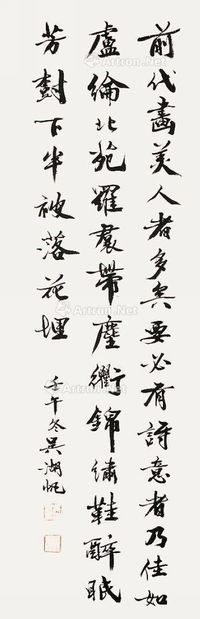 前代畫美人者多矣要必有詩意者乃佳如
盧綸北苑羅裠帶塵衢錦繡鞋醉眠
芳樹下半被落花埋
壬午冬吳湖帆
Artron.Net